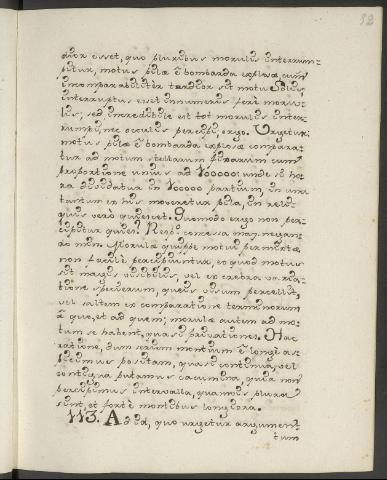 92
dior esset, quo pluribus morulis interrum-
pitur, motus pilæ è bombarda explosæ, cum
incomparabiliter tardior sit motu Solis,
interruptus esset innumeris ferè moru-
lis; sed incredibile est tot morulis inter-
rumpi, nec oculis percipi, ergo. Urgetur:
motus pilæ è bombarda explosæ compara-
tur ad motum stellarum fixarum cum
proportione unius ad 100000: unde si ho-
ra dividatur in 100000 partium, in una
tantum ex his movetur pila, in reli-
quis verò quiescet. Quomodo ergo non per-
cipitur quies? Resp. concessa maj. negan-
do min. Morulæ quippe motui permixtæ,
non facilè percipiuntur, eo quod motus
sit magis visibilis, vel ex crebra varia-
tione specierum, queis visum percellit,
vel saltem ex comparatione terminorum
à quo, et ad quem; morulæ autem ad mo-
tum se habent, quasi privationes. Hac
ratione, dum seriem montium è longè as-
picimus positam, quasi continua, vel
contigua putamus cacumina, quia non
percipimus intervalla, quamvis plura
sint, et fortè montibus longiora.
113. Ad id, quo urgetur argumen-
tum